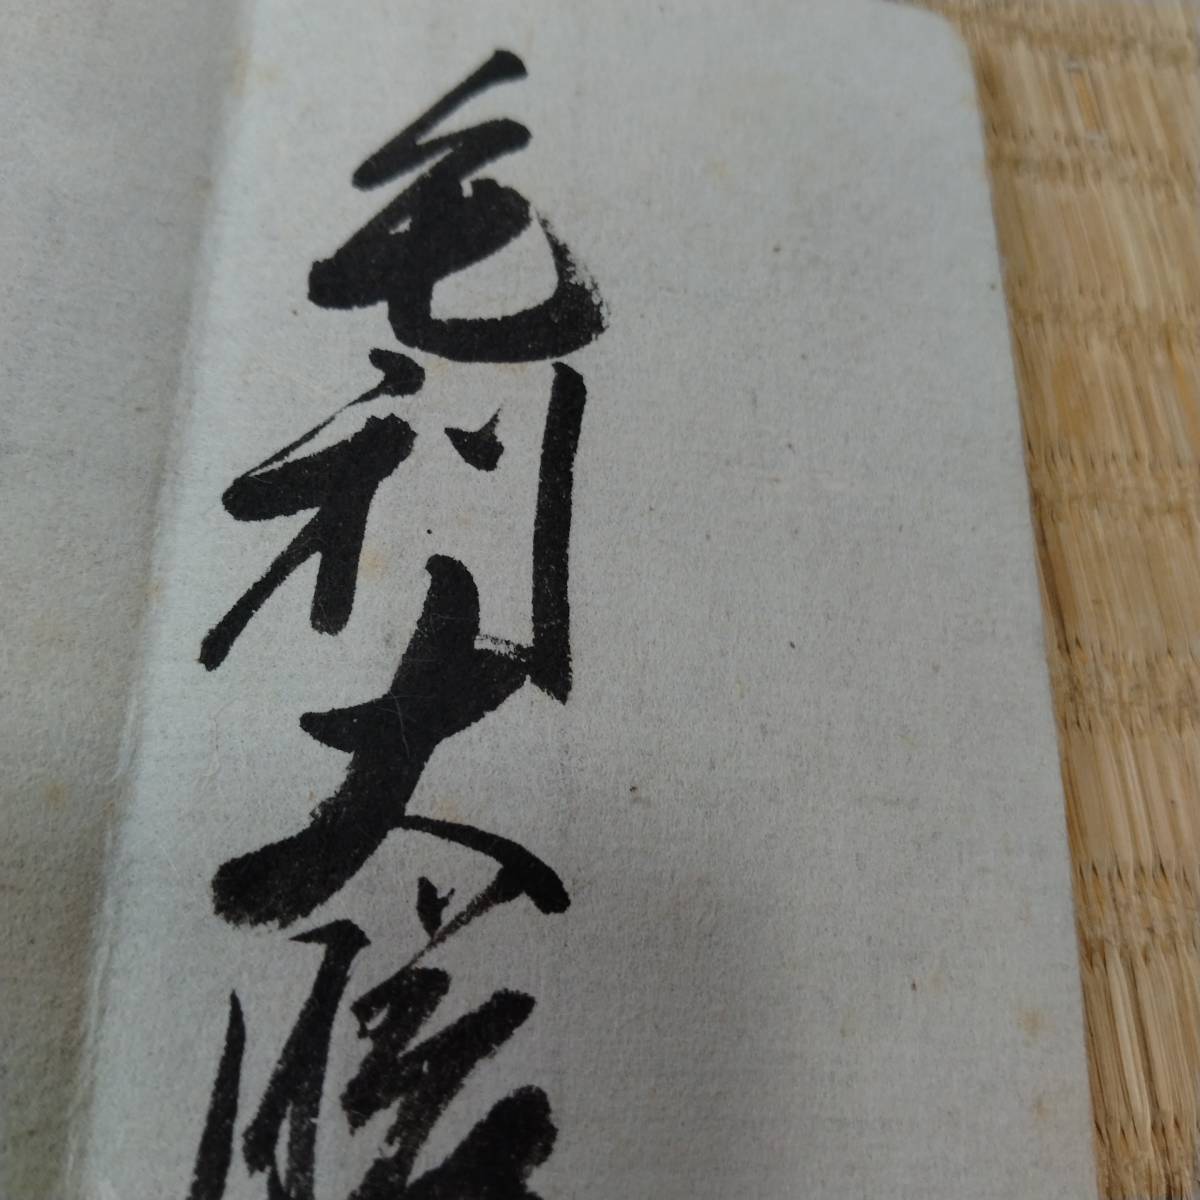 毛利大膳